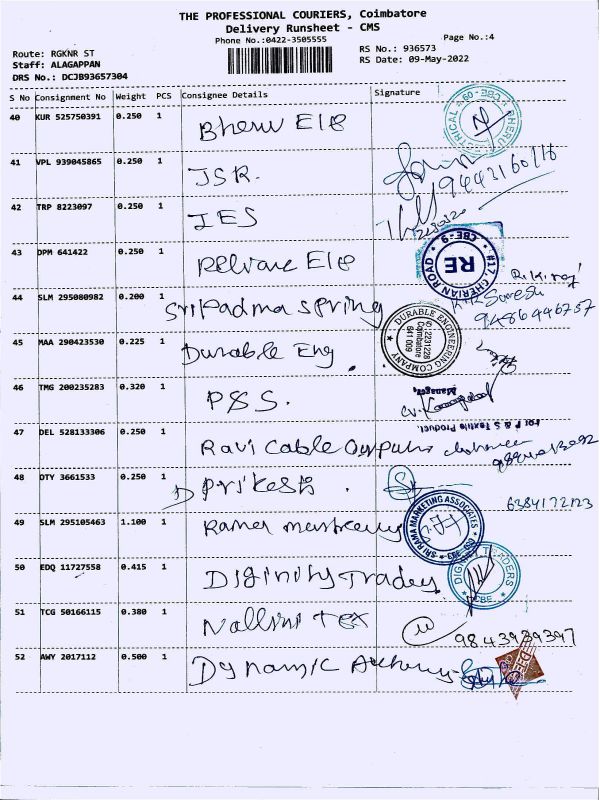 THE PROFESSIONAL COURIERS, Coimbatore
Delivery Runsheet - CMS
Phone No.:0422-3505555
Page No.:4
Route: RGKNR ST
Staff: ALAGAPPAN
DRS No.: DCJB93657304
RS No.: 936573
RS Date: 09-May-2022
S No Consignment No Weight PCS Consignee Details Signature
40 KUR 525750391 0.250 1 Bheru Ele
41 VPL 939045865 0.250 1 JSR.
9443160116
42 TRP 8223097 0.250 1 IES
43 DPM 641422 0.250 1 Reliance Ele
CBE-9
#17, CHERIAN ROAD
RE
44 SLM 295080982 0.200 1 Sripadma Spring
Suresh
9486446757
45 MAA 290423530 0.225 1 Durable Eng.
DURABLE ENGINEERING COMPANY
2231228
Coimbatore
641 009
46 TMG 200235283 0.320 1 P&S.
Manager,
For P & S Textile Product.
47 DEL 528133306 0.250 1 Ravi Cable
48 OTY 3661533 0.250 1
6384172123
49 SLM 295105463 1.100 1
SRI RAMA MARKETING ASSOCIATES
50 EDQ 11727558 0.415 1 Diginity Traders
TRADERS
CBE.
51 TCG 50166115 0.380 1 Nallini Tex
9843939397
52 AWY 2017112 0.500 1 Dynamic